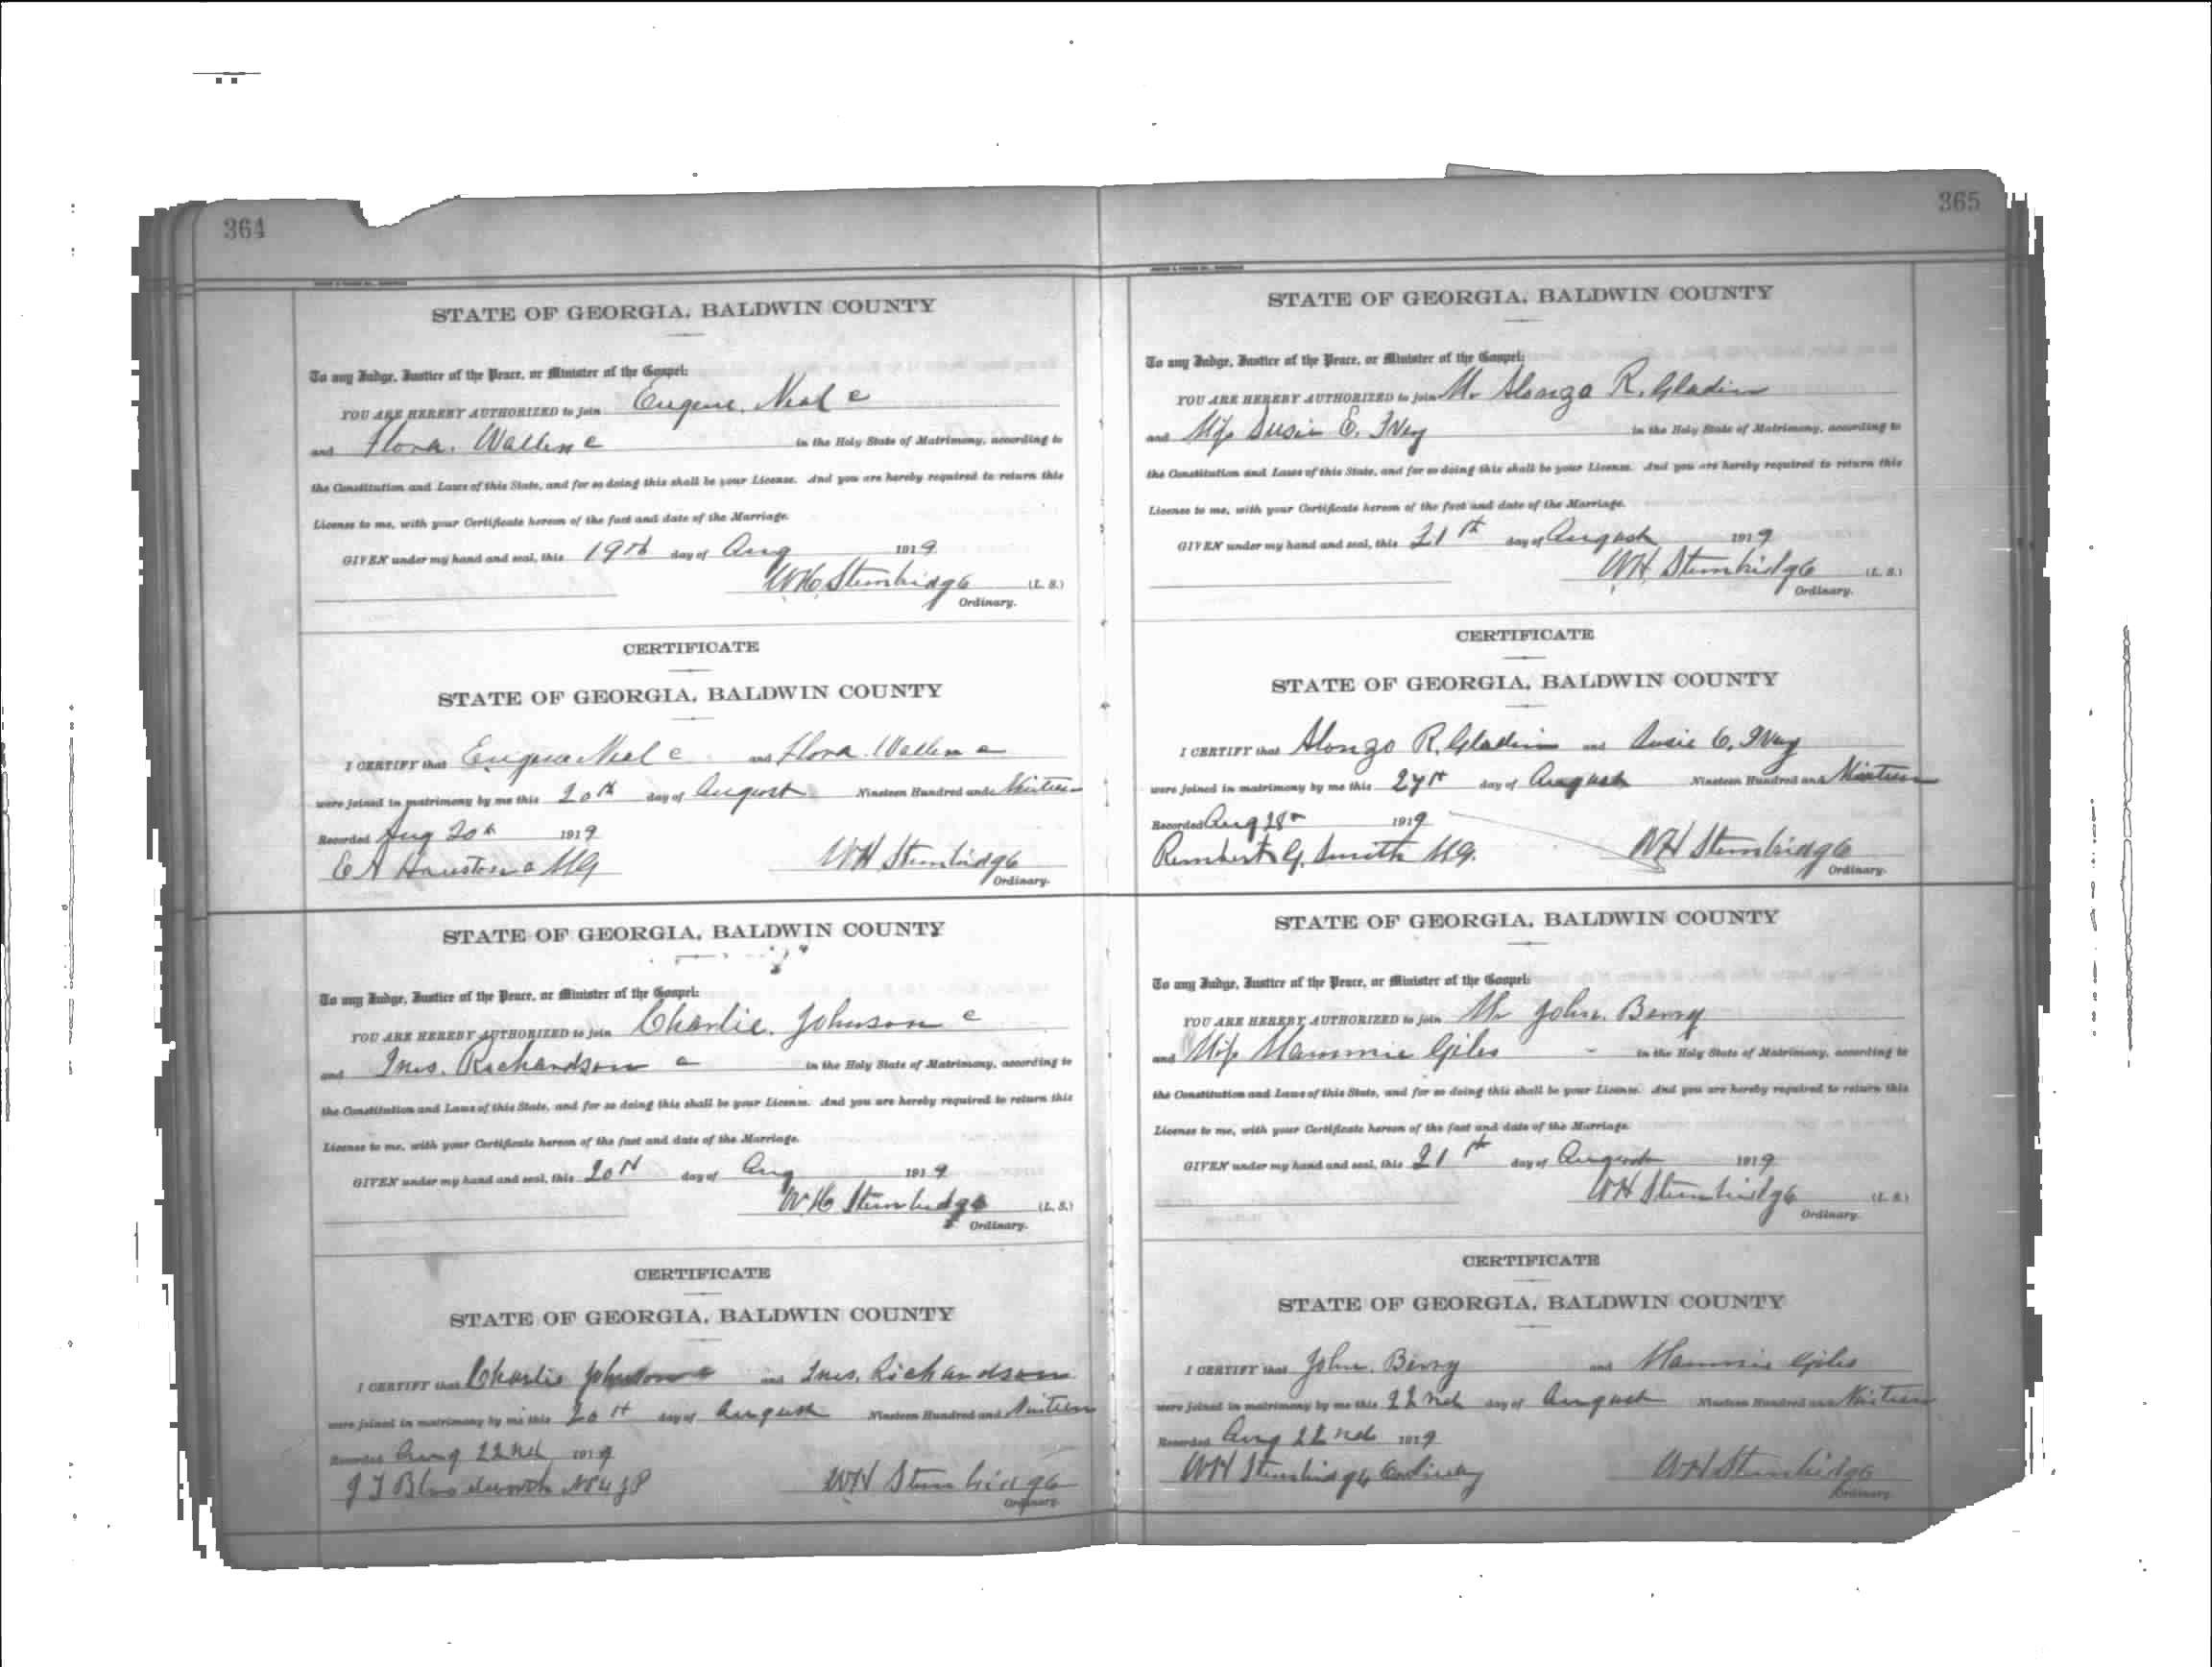 364
STATE OF GEORGIA, BALDWIN COUNTY
To any Judge, Justice of the Peace, or Minister of the Gospel:
YOU ARE HEREBY AUTHORIZED to join Eugene. Neal c
and Flora. Wallen c in the Holy State of Matrimony, according to
the Constitution and Laws of this State, and for so doing this shall be your License. And you are hereby required to return this
License to me, with your Certificate hereon of the fact and date of the Marriage.
GIVEN under my hand and seal, this 19th day of Aug 1919
WH Stembridge (L. S.)
Ordinary.
CERTIFICATE
STATE OF GEORGIA, BALDWIN COUNTY
I CERTIFY that Eugene Neal c and Flora. Wallen c
were joined in matrimony by me this 20th day of August Nineteen Hundred and Nineteen
Recorded Aug 20th 1919
E A Houston c MG WH Stembridge
Ordinary.
STATE OF GEORGIA, BALDWIN COUNTY
To any Judge, Justice of the Peace, or Minister of the Gospel:
YOU ARE HEREBY AUTHORIZED to join Charlie. Johnson c
and Ines. Richardson c in the Holy State of Matrimony, according to
the Constitution and Laws of this State, and for so doing this shall be your License. And you are hereby required to return this
License to me, with your Certificate hereon of the fact and date of the Marriage.
GIVEN under my hand and seal, this 20th day of Aug 1919
WH Stembridge (L. S.)
Ordinary.
CERTIFICATE
STATE OF GEORGIA, BALDWIN COUNTY
I CERTIFY that Charlie Johnson c and Ines. Richardson
were joined in matrimony by me this 20th day of August Nineteen Hundred and Nineteen
Recorded Aug 22nd 1919
J T Bloodworth WH Stembridge
Ordinary.
365
STATE OF GEORGIA, BALDWIN COUNTY
To any Judge, Justice of the Peace, or Minister of the Gospel:
YOU ARE HEREBY AUTHORIZED to join Mr Alonzo R. Gladin
and Miss Susie E. Ivey in the Holy State of Matrimony, according to
the Constitution and Laws of this State, and for so doing this shall be your License. And you are hereby required to return this
License to me, with your Certificate hereon of the fact and date of the Marriage.
GIVEN under my hand and seal, this 21st day of August 1919
WH Stembridge (L. S.)
Ordinary.
CERTIFICATE
STATE OF GEORGIA, BALDWIN COUNTY
I CERTIFY that Alonzo R. Gladin and Susie E. Ivey
were joined in matrimony by me this day of August Nineteen Hundred and Nineteen
Recorded Aug 28th 1919
Rembert G. Smith MG. WH Stembridge
Ordinary.
STATE OF GEORGIA, BALDWIN COUNTY
To any Judge, Justice of the Peace, or Minister of the Gospel:
YOU ARE HEREBY AUTHORIZED to join Mr John. Berry
and Miss Mammie Giles in the Holy State of Matrimony, according to
the Constitution and Laws of this State, and for so doing this shall be your License. And you are hereby required to return this
License to me, with your Certificate hereon of the fact and date of the Marriage.
GIVEN under my hand and seal, this 21st day of August 1919
WH Stembridge (L. S.)
Ordinary.
CERTIFICATE
STATE OF GEORGIA, BALDWIN COUNTY
I CERTIFY that John. Berry and Mammie Giles
were joined in matrimony by me this 22nd day of August Nineteen Hundred and Nineteen
Recorded Aug 22nd 1919
WH Stembridge Ordinary WH Stembridge
Ordinary.